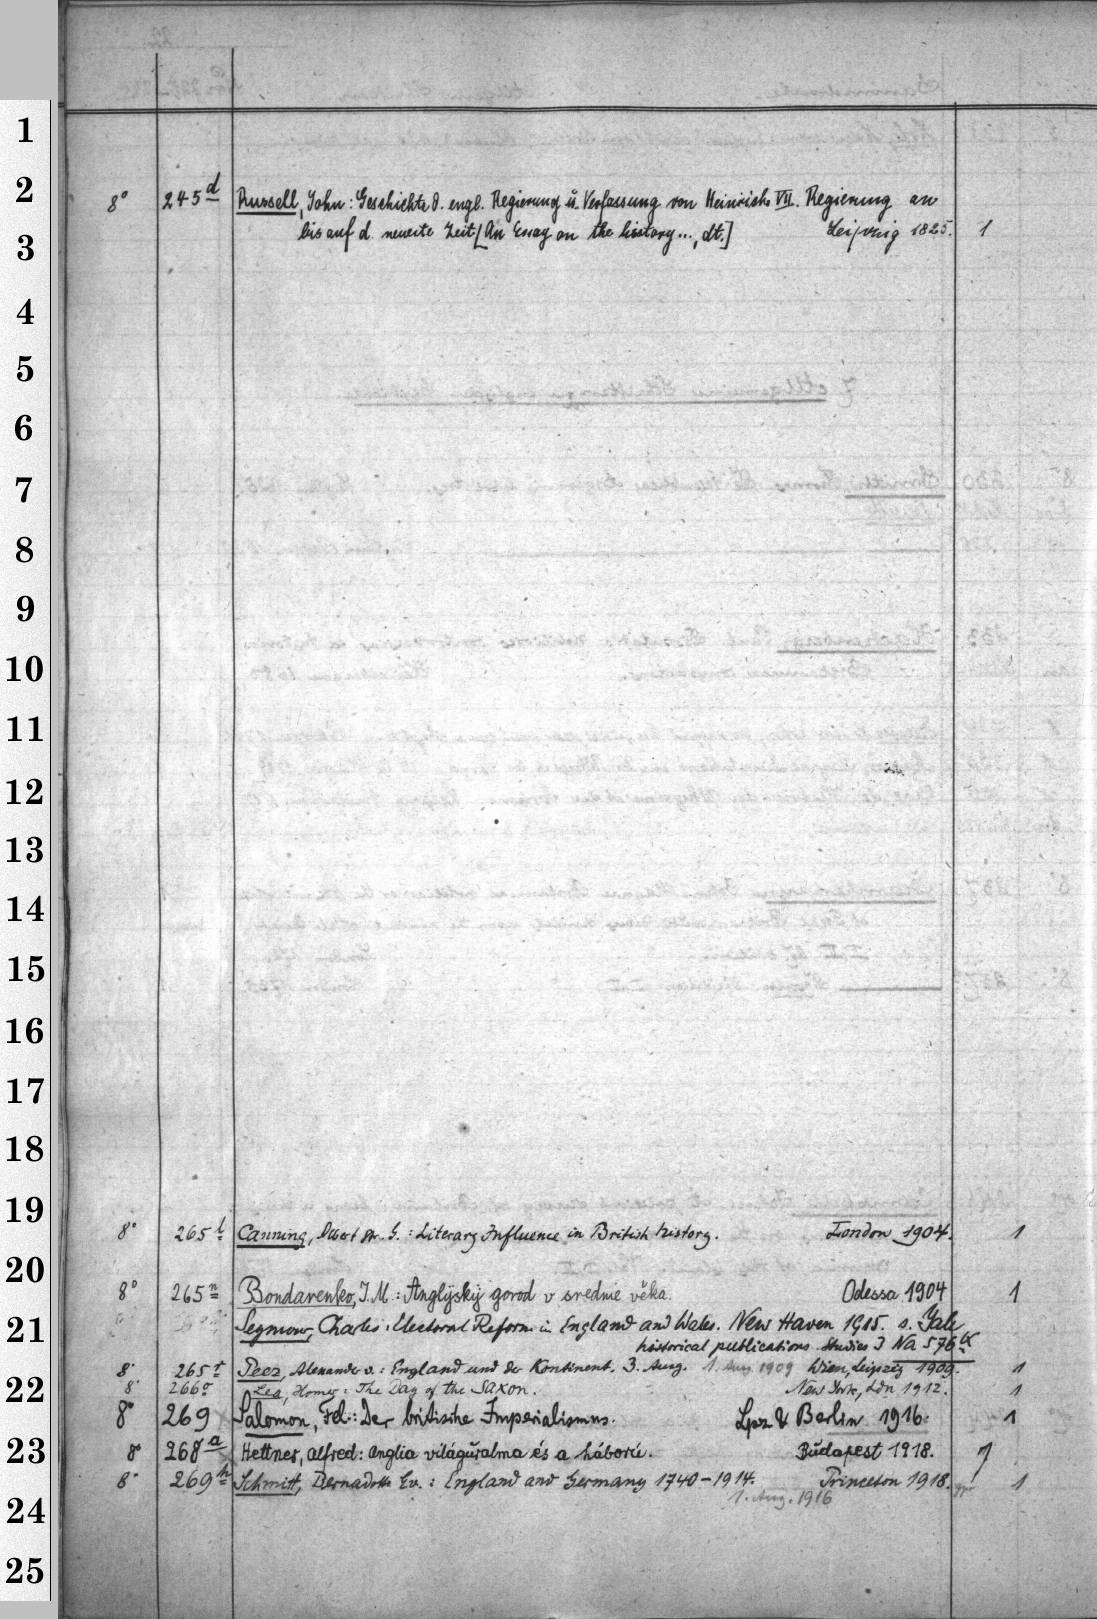 1
2
8° 245d Russell, John: Geschichte d. engl. Regierung u. Verfassung von Heinrichs VII. Regierung an
3
bis auf d. neueste Zeit [An Essay on the history..., dt.] Leipzig 1825. 1
4
5
6
7
8
9
10
11
12
13
14
15
16
17
18
19
8° 265l Canning, Albert Str. G.: Literary Influence in British history. London 1904. 1
20
8° 265n Bondarenko, I. M.: Anglÿskÿ gorod v srednie věka. Odessa 1904 1
21
Seymour, Charles: Electoral Reform in England and Wales. New Haven 1915. s. Yale
historical publications. Studies 3 Na 576tx
8° 265t Peez, Alexander v.: England und der Kontinent. 3. Aufl. 1. Aufl. 1909 Wien, Leipzig 1909. 1
22
8° 266 Lea, Homer: The Day of the Saxon. New York, Ldn 1912. 1
8° 269 Salomon, Fel.: Der britische Imperialismus. Lpz & Berlin 1916. 1
23
8° 268a Hettner, Alfred: Anglia világuralma és a háború. Budapest 1918. 1
8° 269n Schmitt, Bernadotte Ev.: England and Germany 1740-1914. Princeton 1918. 1
24
1. Aufl. 1916
25